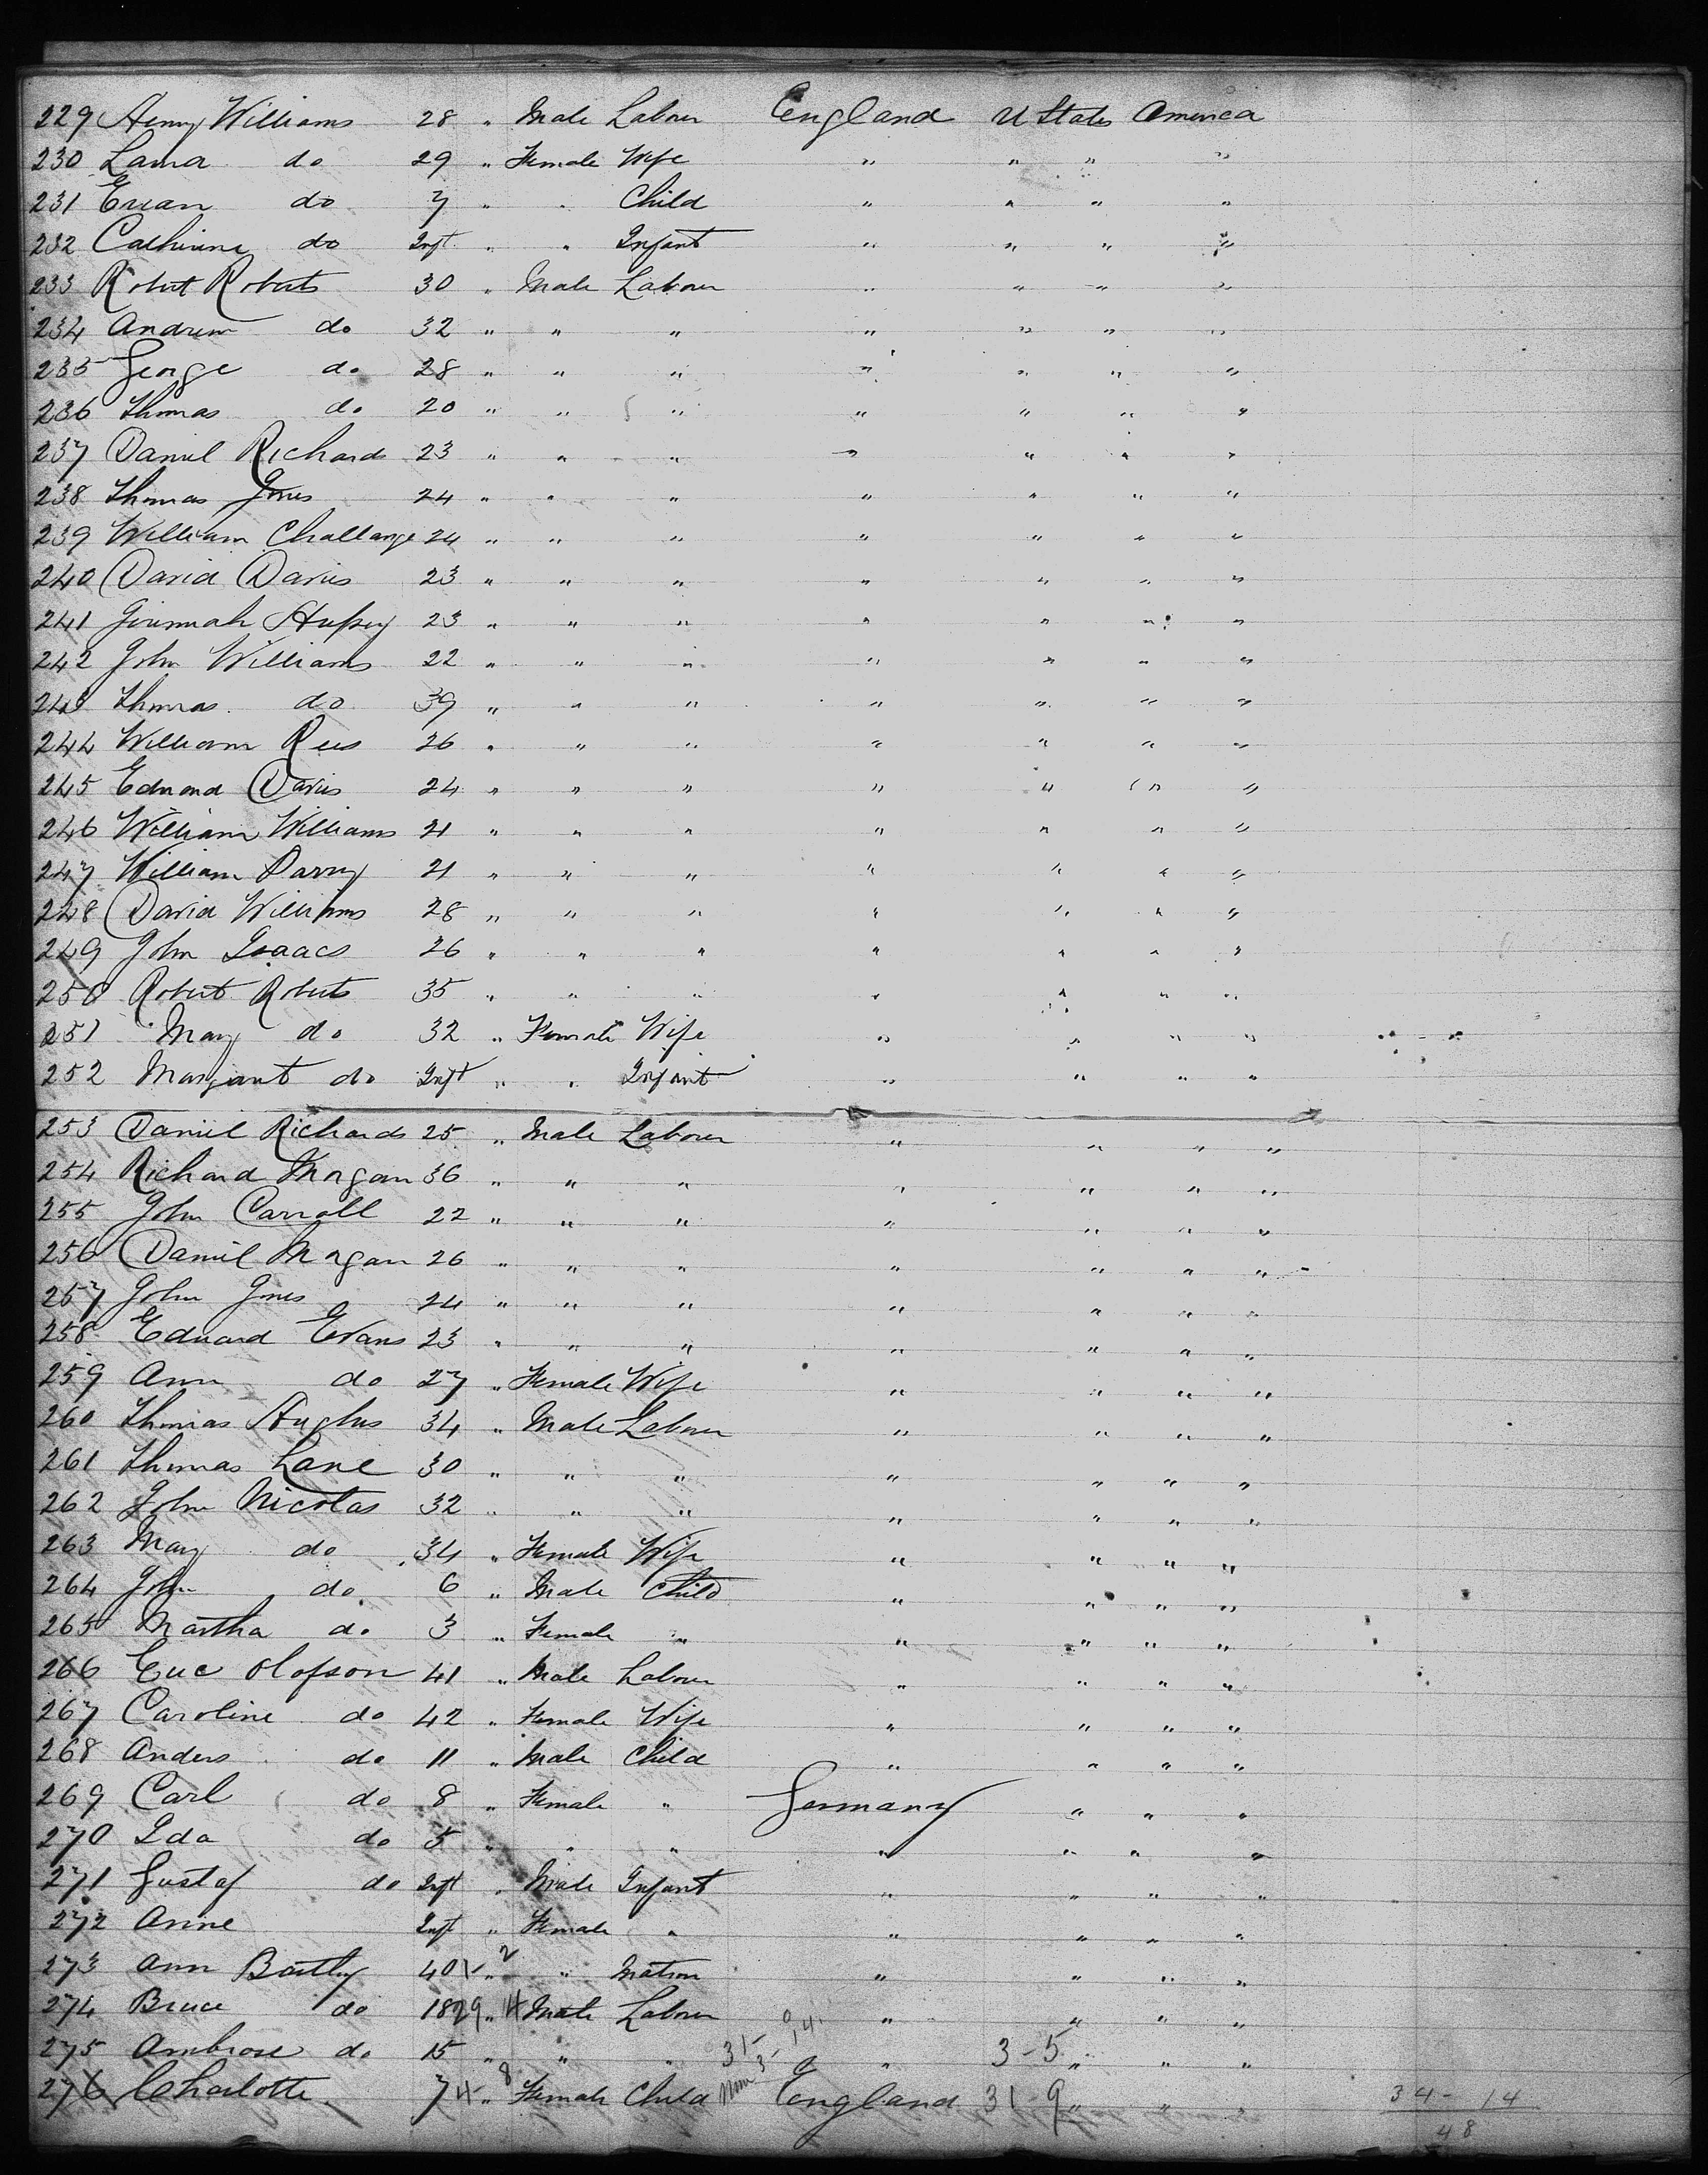 229 Henry Williams 28 " Male Labour England U States America
230 Laura do 29 " Female Wife " " " "
231 do 7 " " Child " " " "
232 Catherine do Inft " " Infant " " " "
233 Robert Roberts 30 " Male Labour " " " "
234 Andrew do 32 " " " " " " "
235 George do 28 " " " " " " "
236 Thomas do 20 " " " " " " "
237 Daniel Richards 23 " " " " " " "
238 Thomas Jones 24 " " " " " " "
239 William Challange 24 " " " " " " "
240 David Davies 23 " " " " " " "
241 23 " " " " " " "
242 John Williams 22 " " " " " " "
243 Thomas do 39 " " " " " " "
244 William Rees 26 " " " " " " "
245 Edward Davies 24 " " " " " " "
246 William Williams 21 " " " " " " "
247 William Parry 21 " " " " " " "
248 David Williams 28 " " " " " " "
249 John Isaacs 26 " " " " " " "
250 Robert Roberts 35 " " " " " " "
251 Mary do 32 " Female Wife " " " "
252 Margaret do Inft " " Infant " " " "
253 Daniel Richards 25 " Male Labour " " " "
254 Richard Morgan 36 " " " " " " "
255 John Carroll 22 " " " " " " "
256 Daniel Morgan 26 " " " " " " "
257 John Jones 24 " " " " " " "
258 Edward Evans 23 " " " " " " "
259 Ann do 27 " Female Wife " " " "
260 Thomas Hughes 34 " Male Labour " " " "
261 Thomas Lane 30 " " " " " " "
262 John Nicolas 32 " " " " " " "
263 Mary do 34 " Female Wife " " " "
264 John do 6 " Male Child " " " "
265 Martha do 3 " Female " " " " "
266 Eric Olofson 41 " Male Labour " " " "
267 Caroline do 42 " Female Wife " " " "
268 Anders do 11 " Male Child " " " "
269 Carl do 8 " Female " Germany " " "
270 Ida do 5 " " " " " " "
271 Gustaf do Inft " Male Infant " " " "
272 Anne Inft " Female " " " " "
273 Ann 40 " 2 " Matron " " " "
274 Bruce do 18 " 14 Male Labour " " " "
275 Ambrose do 15 " " " " 3-5 " " "
276 Charlotte 7 " 8 Female Child England 31-9 " " " 34-14
48